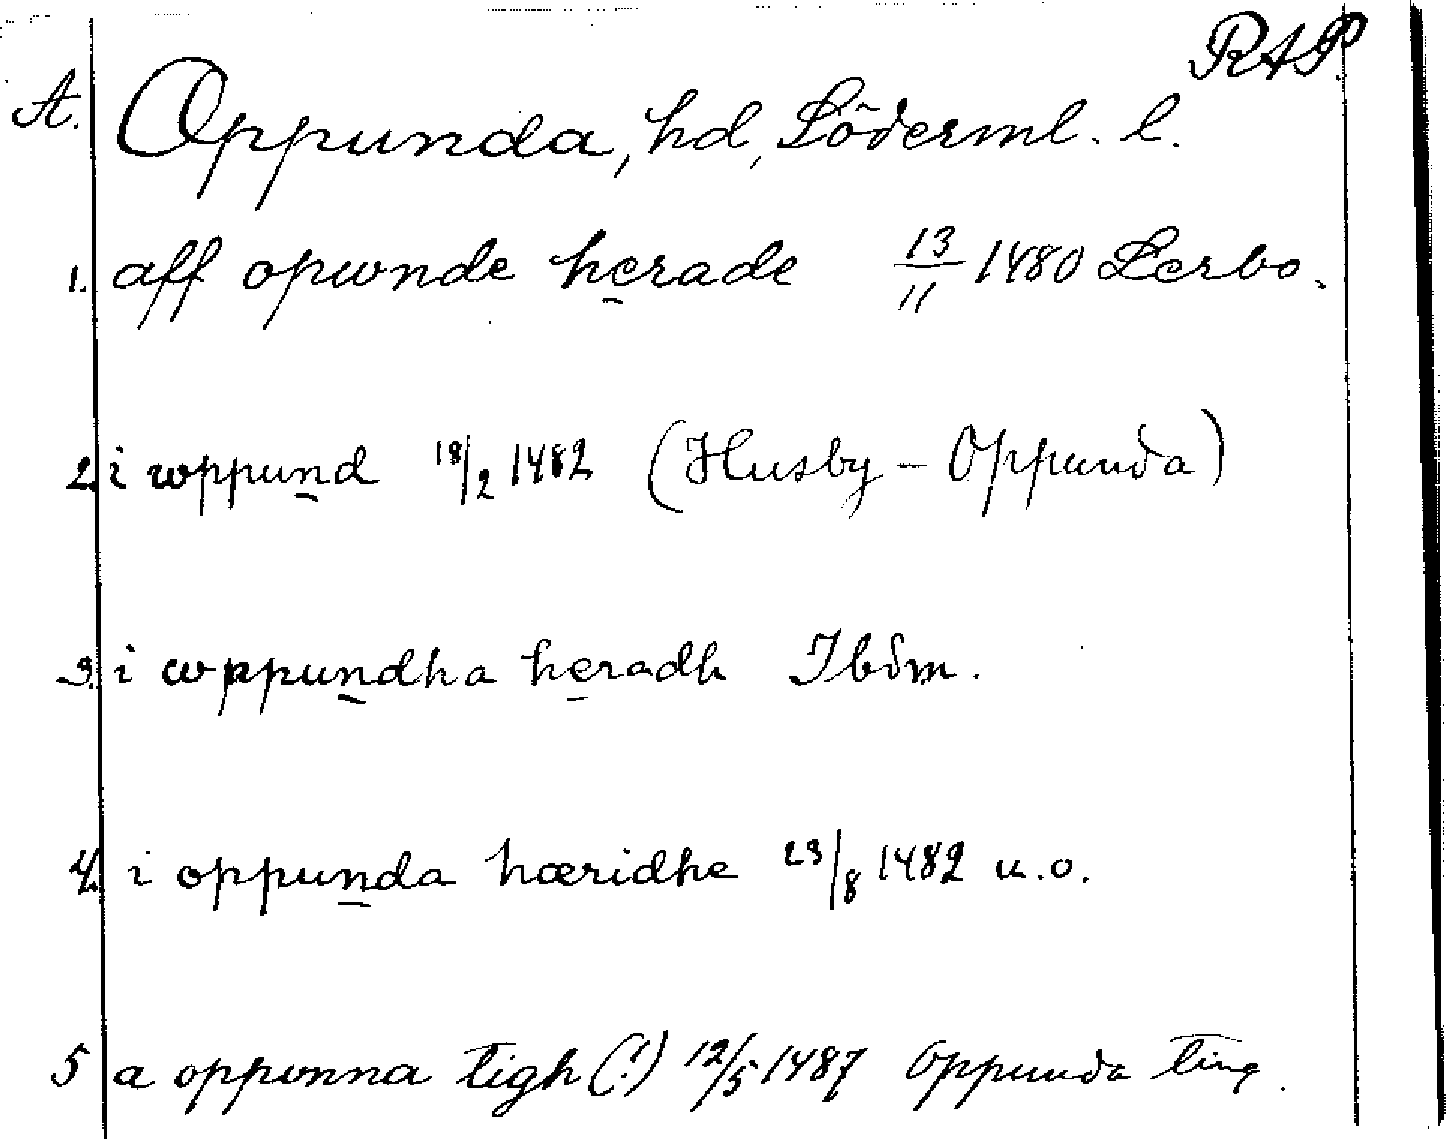 RAP.
A. Oppunda, hd, Söderml. l.
1. aff opwnde herade 13/11 1480 Lerbo.
2. i wppund 18/2 1482 (Husby-Oppunda)
3. i wppundha heradh Ibdm.
4. i oppunda hæridhe 23/8 1482 u.o.
5 a oppwnna tigh (!) 12/5 1487 Oppunda ting.